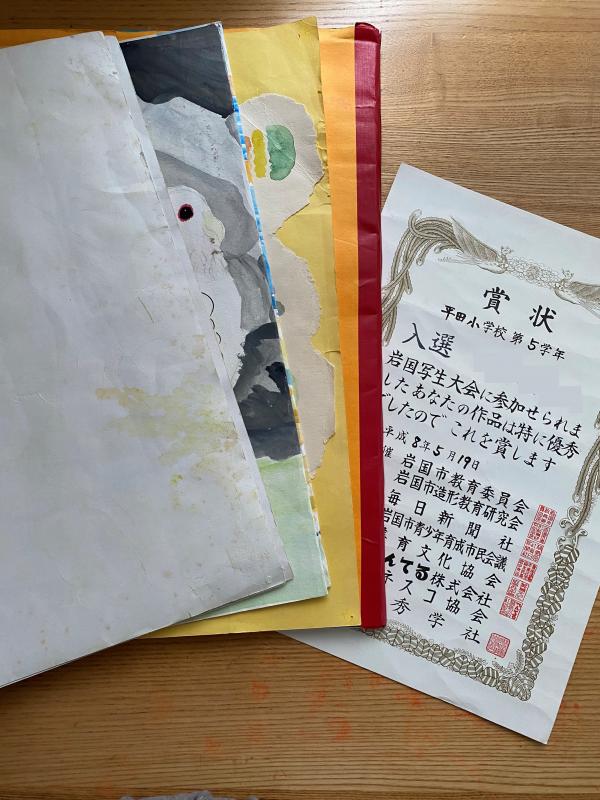 賞状
平田小学校 第5学年
入選
岩国写生大会に参加せられま
したあなたの作品は特に優秀
でしたので これを賞します
平成8年5月19日
催 岩国市教育委員会
岩国市造形教育研究会
毎日新聞社
岩国市青少年育成市民会議
育文化協会
んてる株式会社
ネスコ協会
秀学社